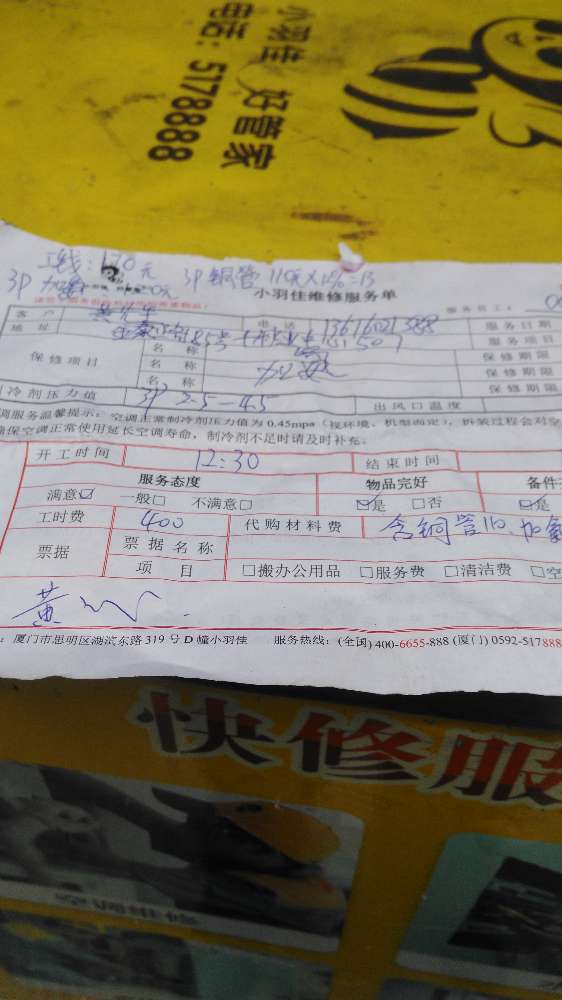 小羽佳 好管家
电话：5178888
工钱：170元 3P铜管 110元X
3P 加氟
小羽佳维修服务单
服务员工：
客户 黄先生 电话 13616021388 服务日期
地址 85号 507 服务项目
保修项目 名称 加氟 保修期限
名称 保修期限
名称 保修期限
冷剂压力值 3P 2.5-4.5 出风口温度
调服务温馨提示：空调正常制冷剂压力值为0.45mpa（视环境、机型而定），拆装过程会对空
确保空调正常使用延长空调寿命，制冷剂不足时请及时补充。
开工时间 12:30 结束时间
服务态度 物品完好 备件
满意☑ 一般□ 不满意□ ☑是 □否 ☑是
工时费 400 代购材料费 含铜管110、加氟
票据 票据名称
项目 □搬办公用品 □服务费 □清洁费 □空
黄
：厦门市思明区湖滨东路319号D幢小羽佳 服务热线：(全国) 400-6655-888 (厦门) 0592-517888
快修服